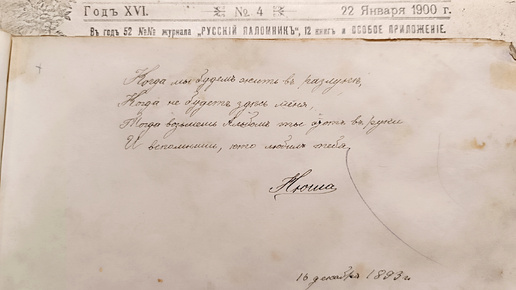 Годъ XVI.
№ 4
22 Января 1900 г.
Въ годъ 52 №№ журнала „РУССКІЙ ПАЛОМНИКЪ", 12 книгъ и ОСОБОЕ ПРИЛОЖЕНІЕ.
Когда мы будемъ жить въ разлукѣ,
Когда не будетъ здѣсь меня,
Тогда возьмешь Альбомъ ты этотъ въ руки
И вспомнишь, кто любилъ тебя.
Нюша
16 декабря 1893 г.